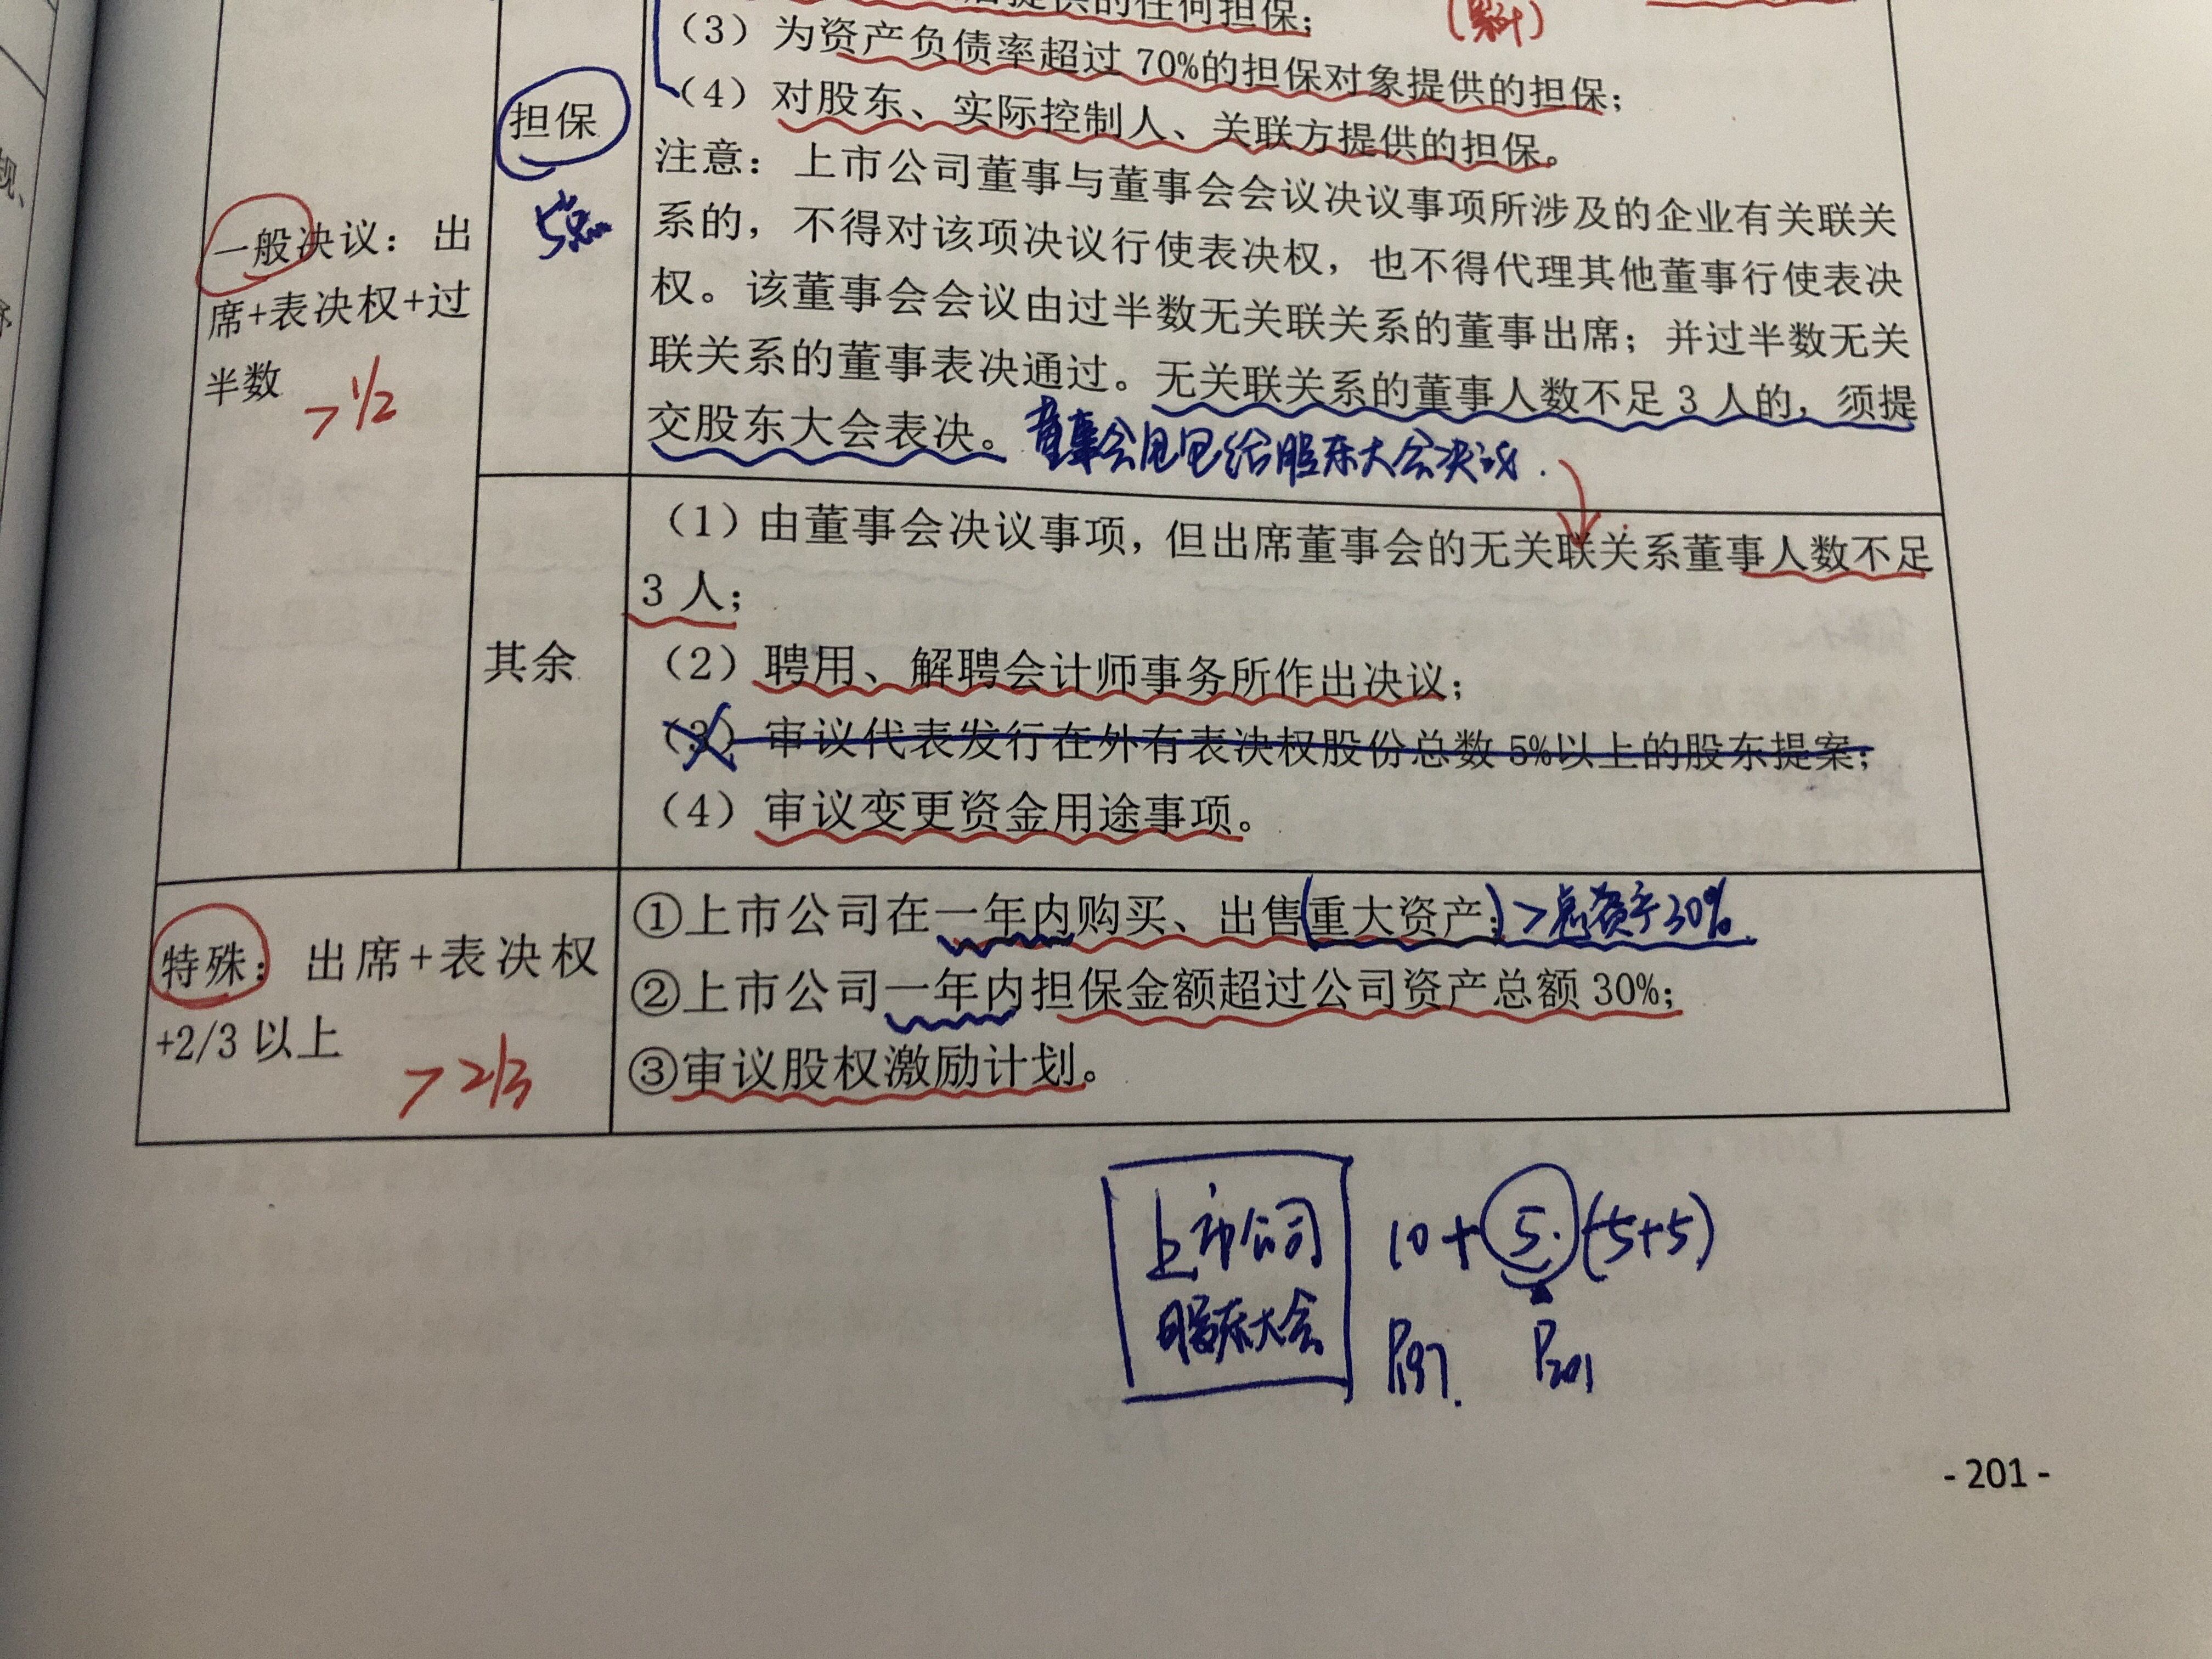 后提供的任何担保；
（累计）
（3）为资产负债率超过 70%的担保对象提供的担保；
（4）对股东、实际控制人、关联方提供的担保。
担保
5点
注意：上市公司董事与董事会会议决议事项所涉及的企业有关联关
系的，不得对该项决议行使表决权，也不得代理其他董事行使表决
权。该董事会会议由过半数无关联关系的董事出席；并过半数无关
联关系的董事表决通过。无关联关系的董事人数不足 3 人的，须提
交股东大会表决。董事会甩给股东大会决议.
一般决议：出
席+表决权+过
半数
>1/2
其余
（1）由董事会决议事项，但出席董事会的无关联关系董事人数不足
3 人；
（2）聘用、解聘会计师事务所作出决议；
（3）审议代表发行在外有表决权股份总数 5%以上的股东提案；
（4）审议变更资金用途事项。
特殊：出席+表决权
+2/3 以上
>2/3
①上市公司在一年内购买、出售(重大资产；)>总资产30%
②上市公司一年内担保金额超过公司资产总额 30%；
③审议股权激励计划。
上市公司
股东大会
10+5.(5+5)
P197. P201
- 201 -